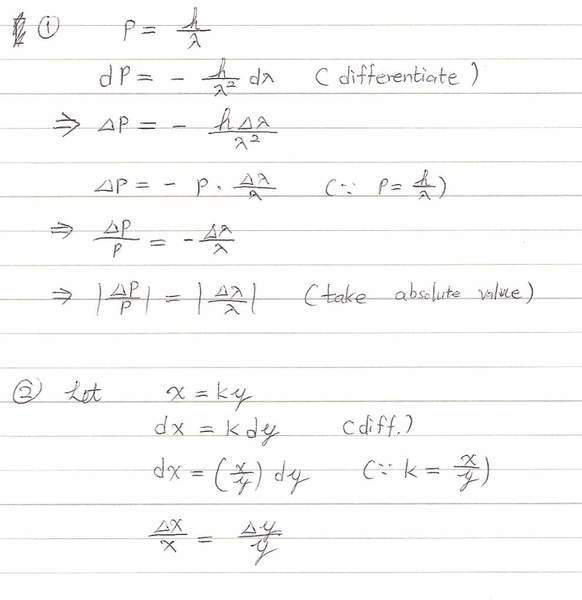 ① P = h/λ
dP = - h/λ² dλ (differentiate)
⇒ ΔP = - hΔλ/λ²
ΔP = - P · Δλ/λ (∵ P = h/λ)
⇒ ΔP/P = - Δλ/λ
⇒ |ΔP/P| = |Δλ/λ| (take absolute value)
② Let x = ky
dx = k dy (diff.)
dx = (x/y) dy (∵ k = x/y)
Δx/x = Δy/y